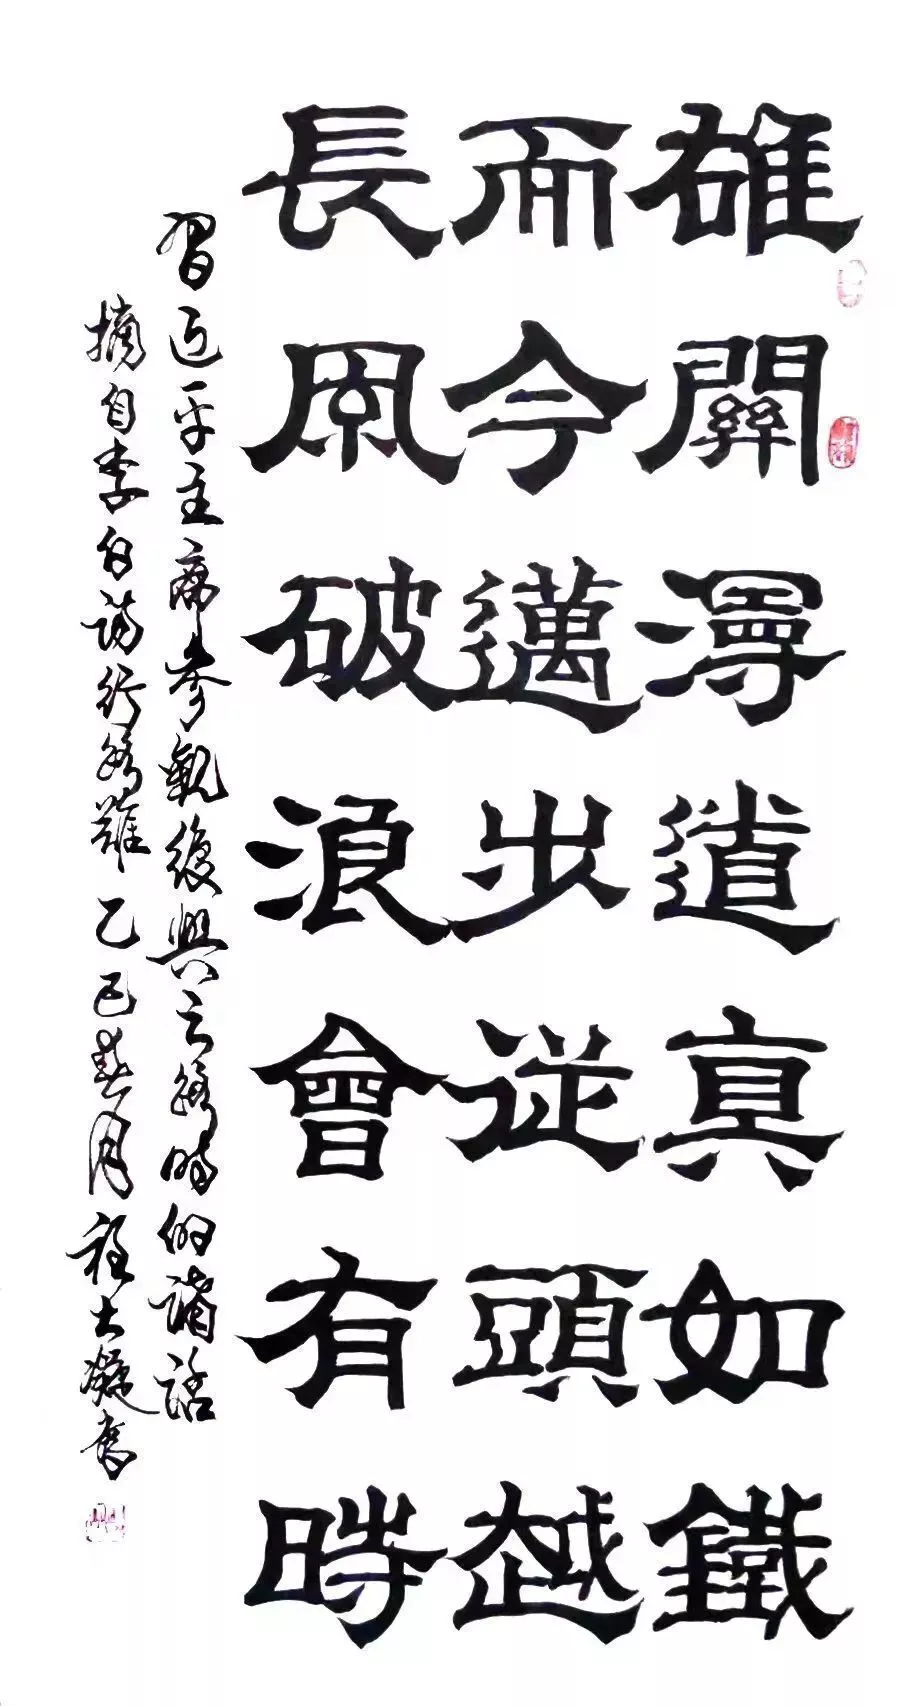 雄關漫道真如鐵
而今邁步從頭越
長風破浪會有時
習近平主席參觀復興之路時的講話
摘自李白詩行路難乙巳春月程士凝書